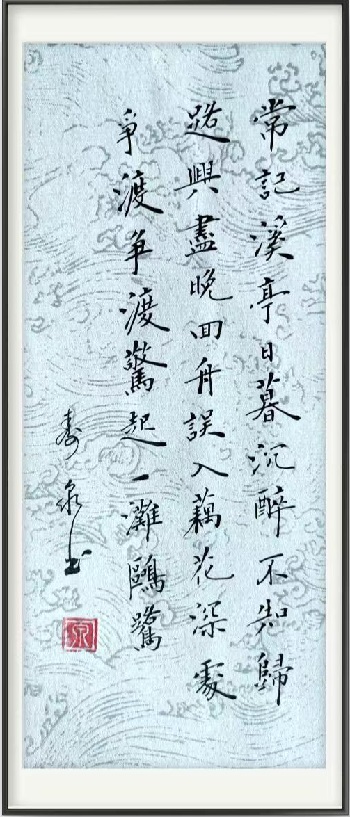 常記溪亭日暮沉醉不知歸
路興盡晚回舟誤入藕花深處
爭渡争渡驚起一灘鷗鷺
寿泉书
泉